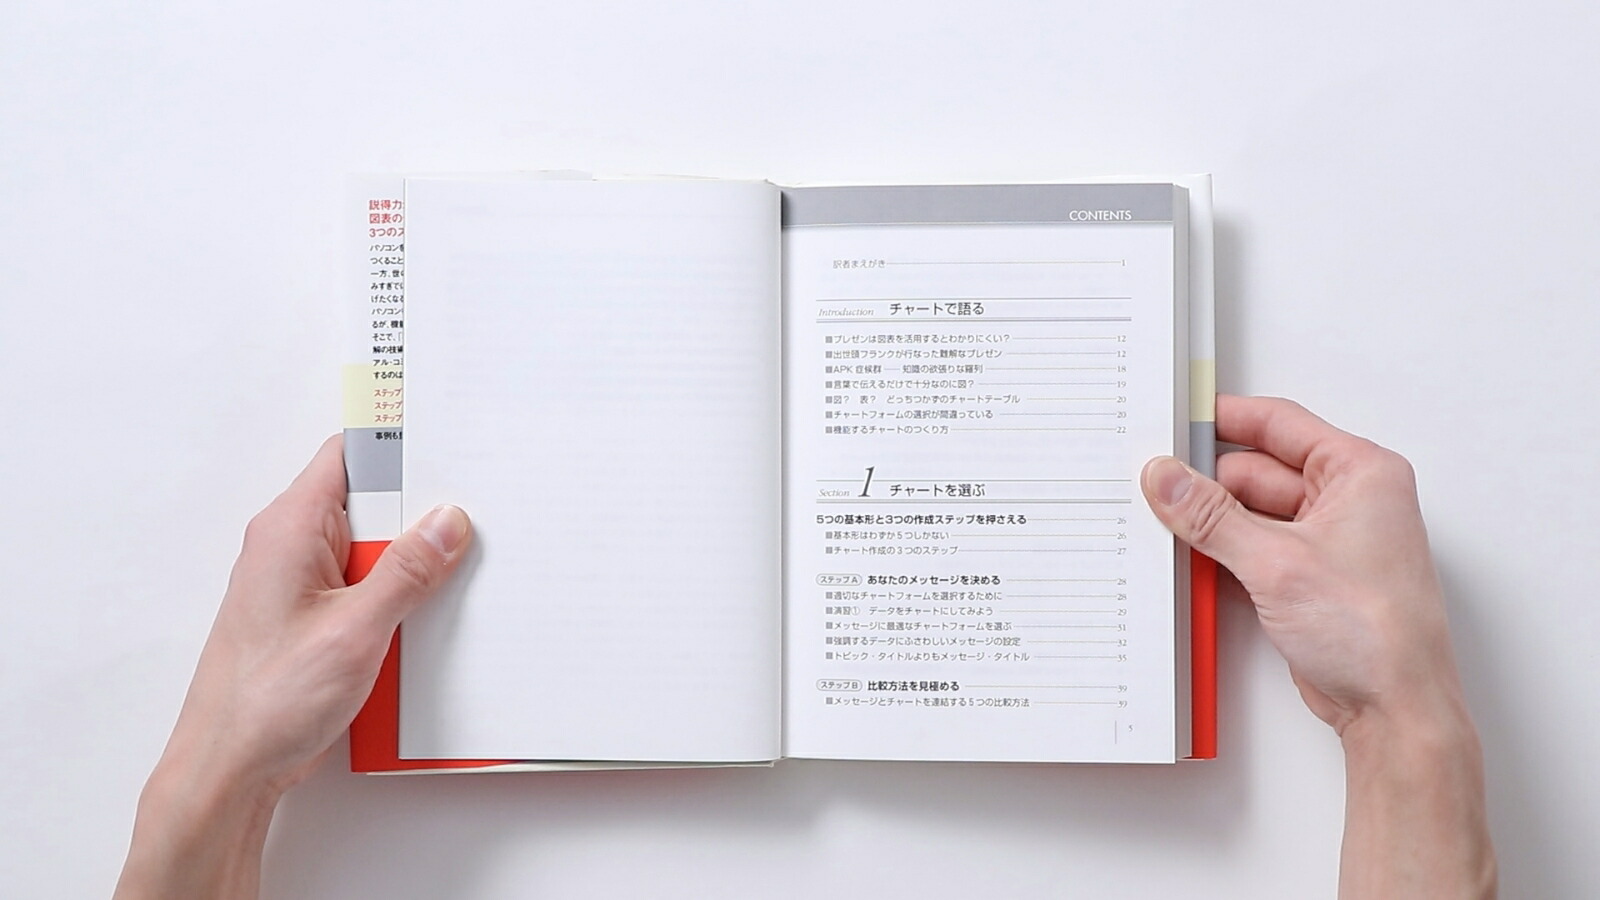 説得力
図表の
3つのス
パソコンを
つくること
一方、世の
みすぎで
げたくなる
パソコン
るが、機能
そこで、「
解の技術
アル・コ
するのは
ステップ
ステップ
ステップ
事例も
CONTENTS
訳者まえがき 1
Introduction チャートで語る
■プレゼンは図表を活用するとわかりにくい? 12
■出世頭フランクが行なった難解なプレゼン 12
■APK 症候群——知識の欲張りな羅列 18
■言葉で伝えるだけで十分なのに図? 19
■図? 表? どっちつかずのチャートテーブル 20
■チャートフォームの選択が間違っている 20
■機能するチャートのつくり方 22
Section 1 チャートを選ぶ
5つの基本形と3つの作成ステップを押さえる 26
■基本形はわずか5つしかない 26
■チャート作成の3つのステップ 27
ステップA あなたのメッセージを決める 28
■適切なチャートフォームを選択するために 28
■演習① データをチャートにしてみよう 29
■メッセージに最適なチャートフォームを選ぶ 31
■強調するデータにふさわしいメッセージの設定 32
■トピック・タイトルよりもメッセージ・タイトル 35
ステップB 比較方法を見極める 39
■メッセージとチャートを連結する5つの比較方法 39
5